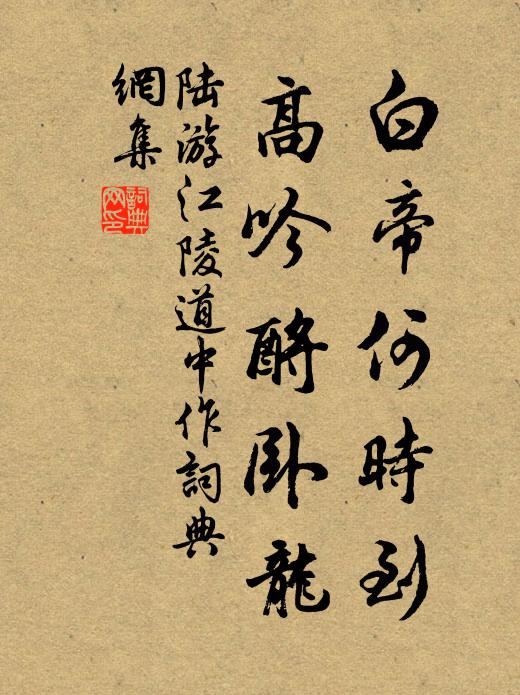 白帝何時到
高吟酹臥龍
陆游江陵道中作詞典
網集
詞典
网印